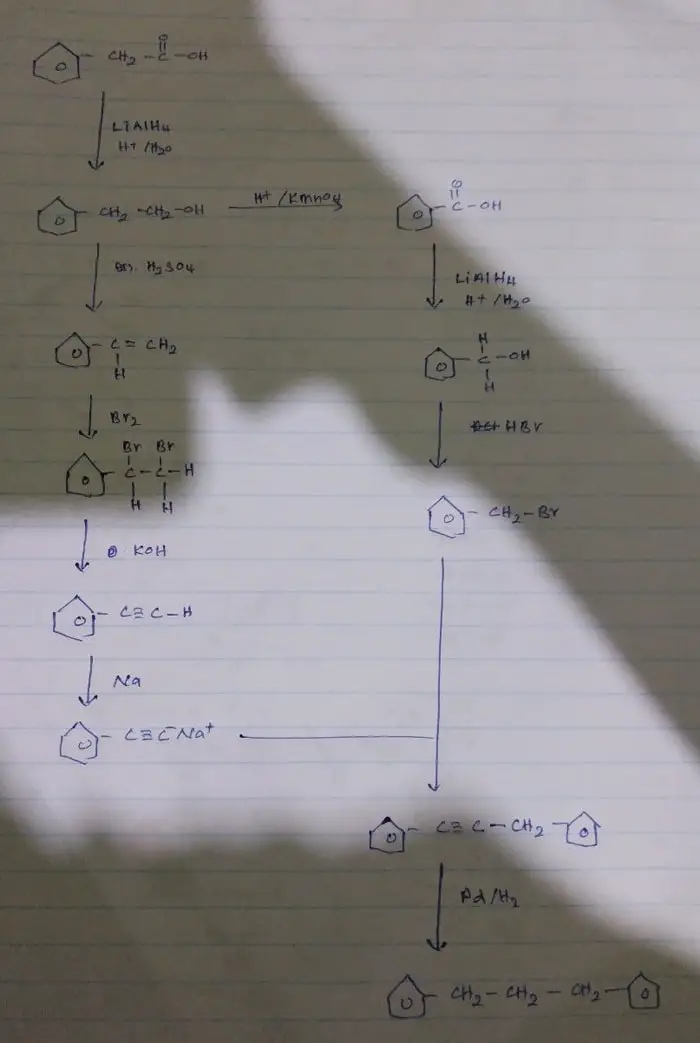 O
CH₂ – C – OH
LiAlH₄
H⁺/H₂O
CH₂ – CH₂ – OH
H⁺/KmnO₄
O
C – OH
H₂SO₄
LiAlH₄
H⁺/H₂O
C = CH₂
H
H
C – OH
H
Br₂
HBr
Br Br
C – C – H
H H
CH₂ – Br
KOH
C≡C–H
Na
C≡C⁻Na⁺
C≡C–CH₂
Pd/H₂
CH₂ – CH₂ – CH₂